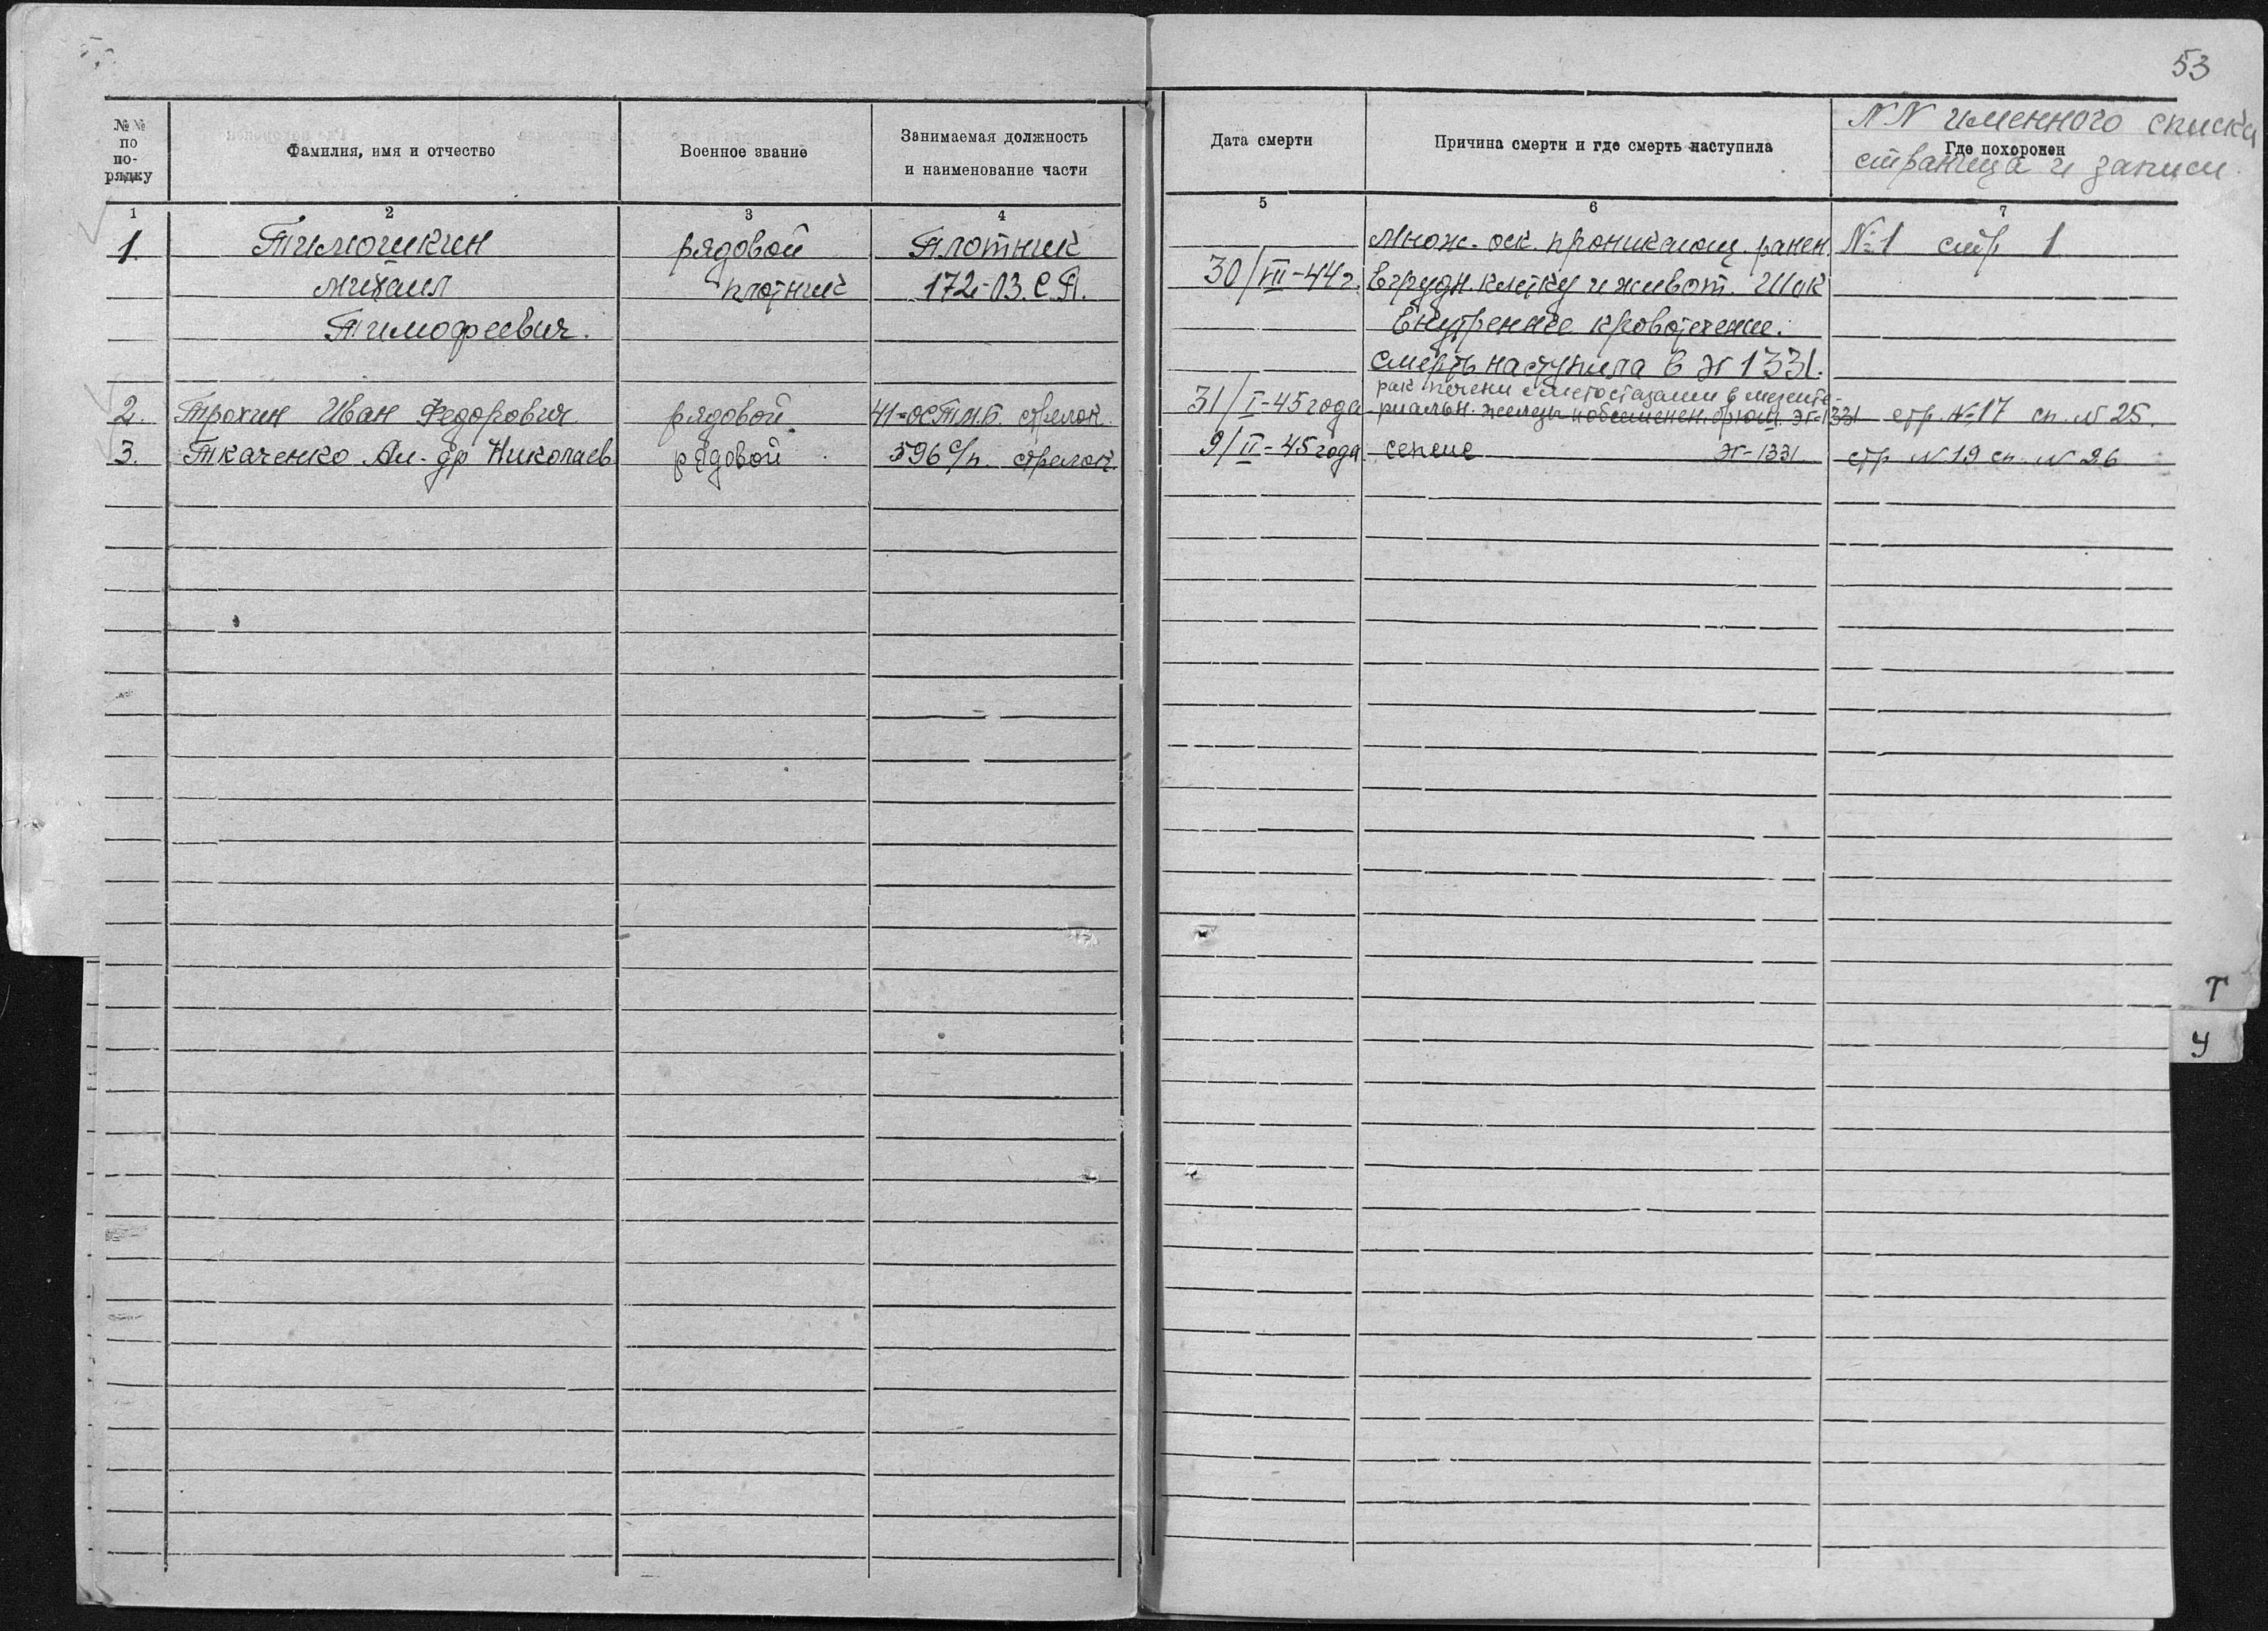 53
№№ по по-рядку
Фамилия, имя и отчество
Военное звание
Занимаемая должность и наименование части
Дата смерти
Причина смерти и где смерть наступила
N N именного списка
Где похоронен
страница и записи
1 2 3 4 5 6 7
1. Тимошкин рядовой Плотник Множ. оск. проникающ. ранен. №1 стр 1
Михаил плотник 172-ОЗ.С.П. 30/VII-44г. в грудн. клетку и живот. Шок
Тимофеевич. Внутреннее кровотечение.
Смерть наступила в ЭГ 1331.
рак печени с метостазами в мезенте-
2. Трохин Иван Федорович рядовой 41-ОСТ.М.Б. стрелок 31/I-45 года риальн. железы 1331 стр. №17 сп. N 25.
3. Ткаченко Ал-др Николаев рядовой 596 с/п. стрелок. 9/II-45 года сепсис ЭГ-1331 стр N 19 сп. N 26
Т
У